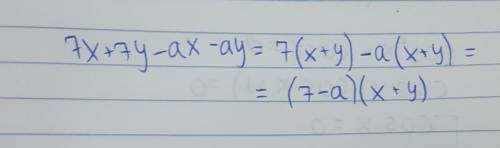 7x+7y-ax-ay= 7(x+y)-a(x+y)=
= (7-a)(x+y)